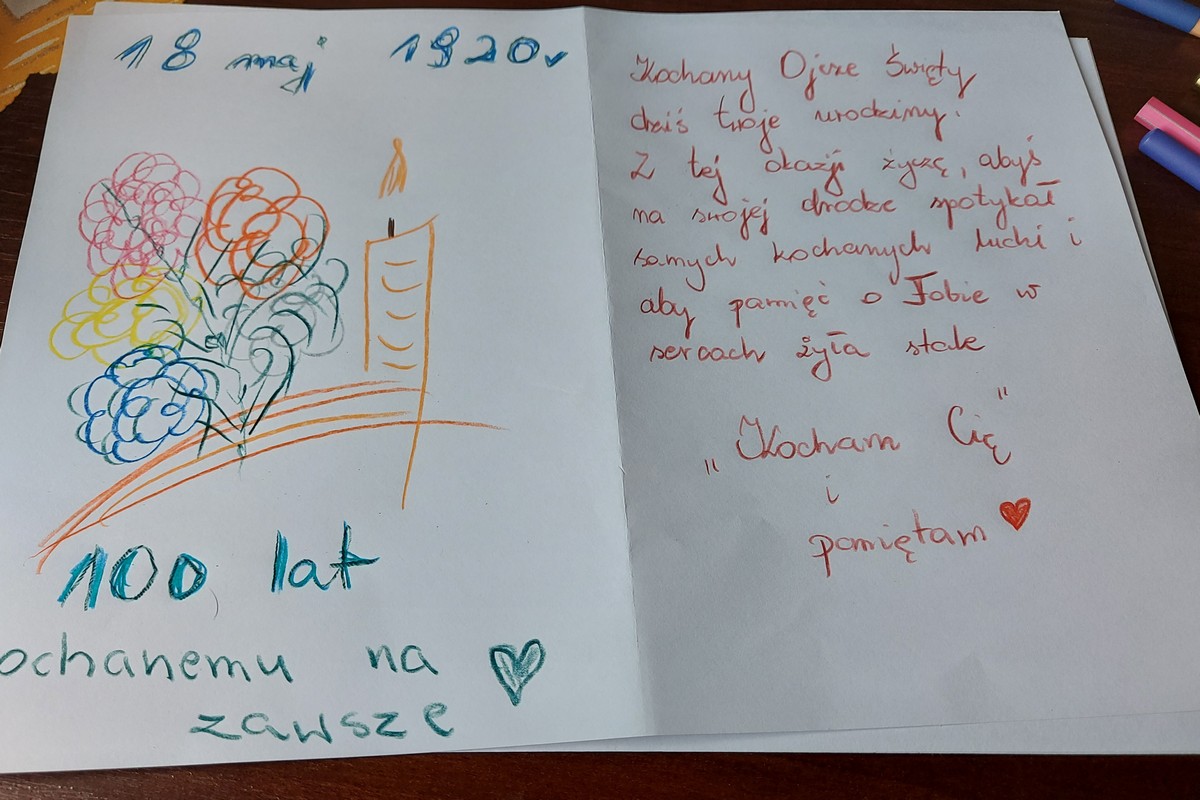 18 maj 1920r
100 lat
ochanemu na
zawsze
Kochany Ojcze Święty
dziś twoje urodziny.
Z tej okazji życzę, abyś
na swojej drodze spotykał
samych kochanych ludzi i
aby pamięć o Tobie w
sercach żyła stale
„Kocham Cię"
i
pamiętam